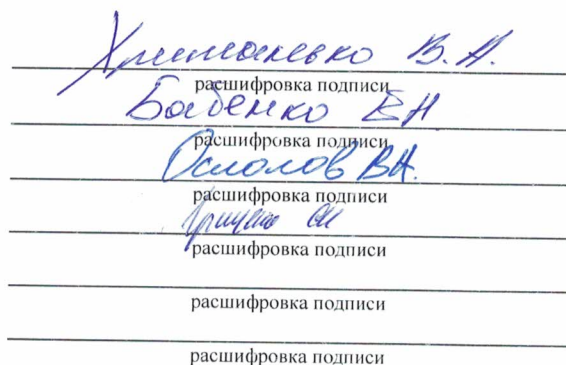 В.А.
расшифровка подписи
Бабенко ЕН
расшифровка подписи
ВН.
расшифровка подписи
расшифровка подписи
расшифровка подписи
расшифровка подписи